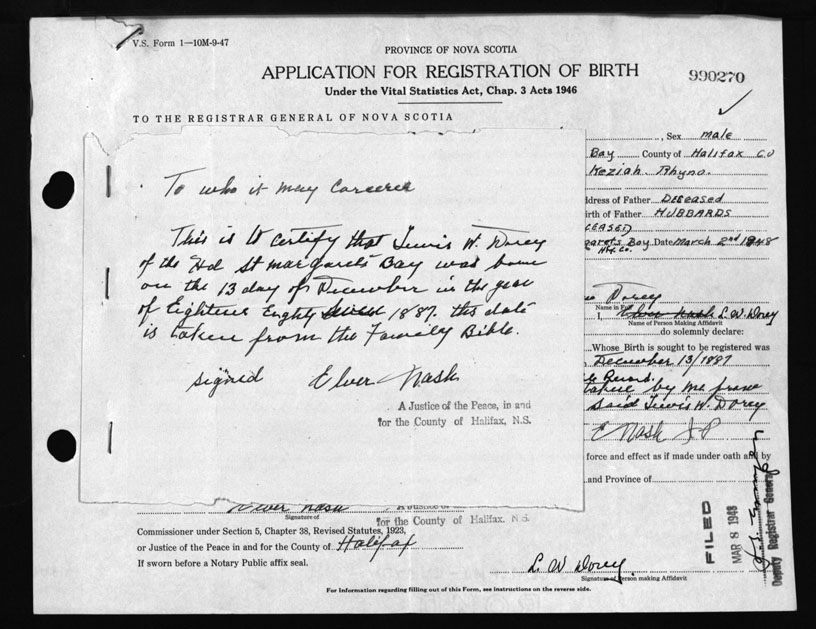 V.S. Form 1—10M-9-47
PROVINCE OF NOVA SCOTIA
APPLICATION FOR REGISTRATION OF BIRTH
990270
Under the Vital Statistics Act, Chap. 3 Acts 1946
TO THE REGISTRAR GENERAL OF NOVA SCOTIA
, Sex male
Bay County of Halifax Co
Keziah Rhyno.
ddress of Father Deceased
irth of Father HUBBARDS
CEASED
garets Bay Date March 2nd 1948
Hfx. Co.
To who it may Concern
This is to certify that Lewis W. Dorey
of the Hd St Margarets Bay was born
on the 13 day of December in the year
of Eighteen Eighty 1887. this date
is taken from the Family Bible.
signed Elver Nash
A Justice of the Peace, in and
for the County of Halifax, N.S.
Dorey
Name in Full
I, Elver Nash L. W. Dorey
Name of Person Making Affidavit
do solemnly declare:
Whose Birth is sought to be registered was
December 13/1887
Record.
by me from
said Lewis W. Dorey
E Nash J P
force and effect as if made under oath and by
and Province of
Elver Nash
Signature of
for the County of Halifax, N.S.
Commissioner under Section 5, Chapter 38, Revised Statutes, 1923,
or Justice of the Peace in and for the County of Halifax
If sworn before a Notary Public affix seal.
L. W. Dorey
Signature of Person making Affidavit
For Information regarding filling out of this Form, see instructions on the reverse side.
FILED
MAR 8 1948
Deputy Registrar General